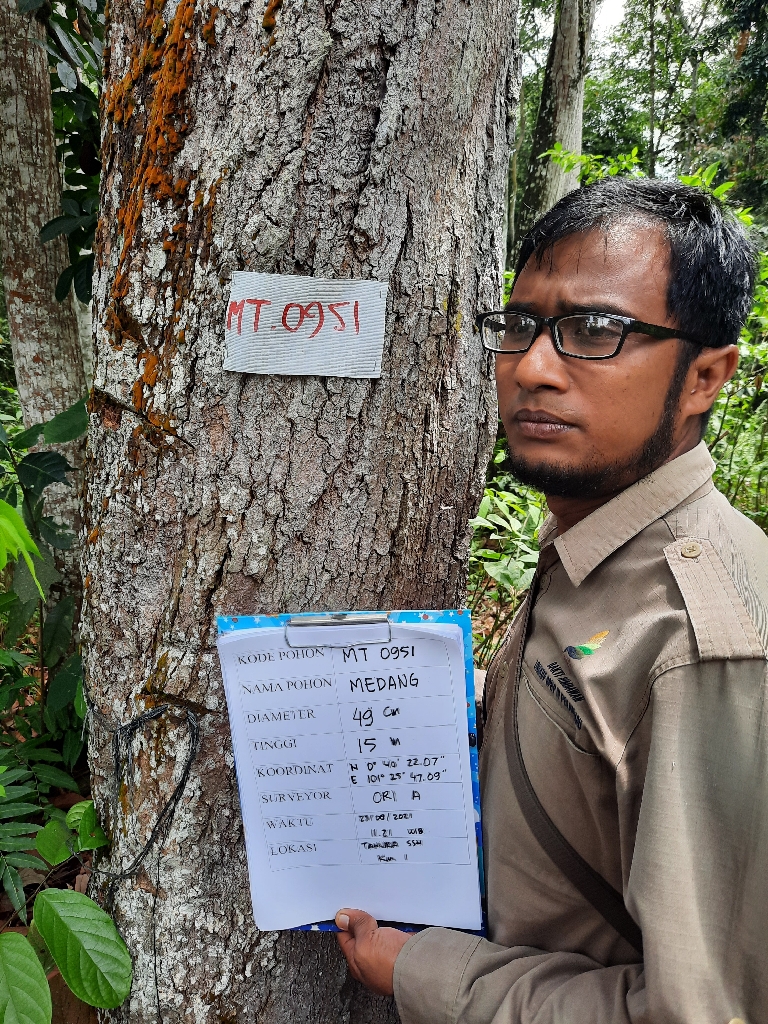 MT.0951
KODE POHON MT 0951
NAMA POHON MEDANG
DIAMETER 49 Cm
TINGGI 15 m
KOORDINAT N 0° 40' 22.07"
E 101° 25' 47.09"
SURVEYOR ORI A
WAKTU /2021
11.21 WIB
LOKASI TAHURA SSH
Km 11